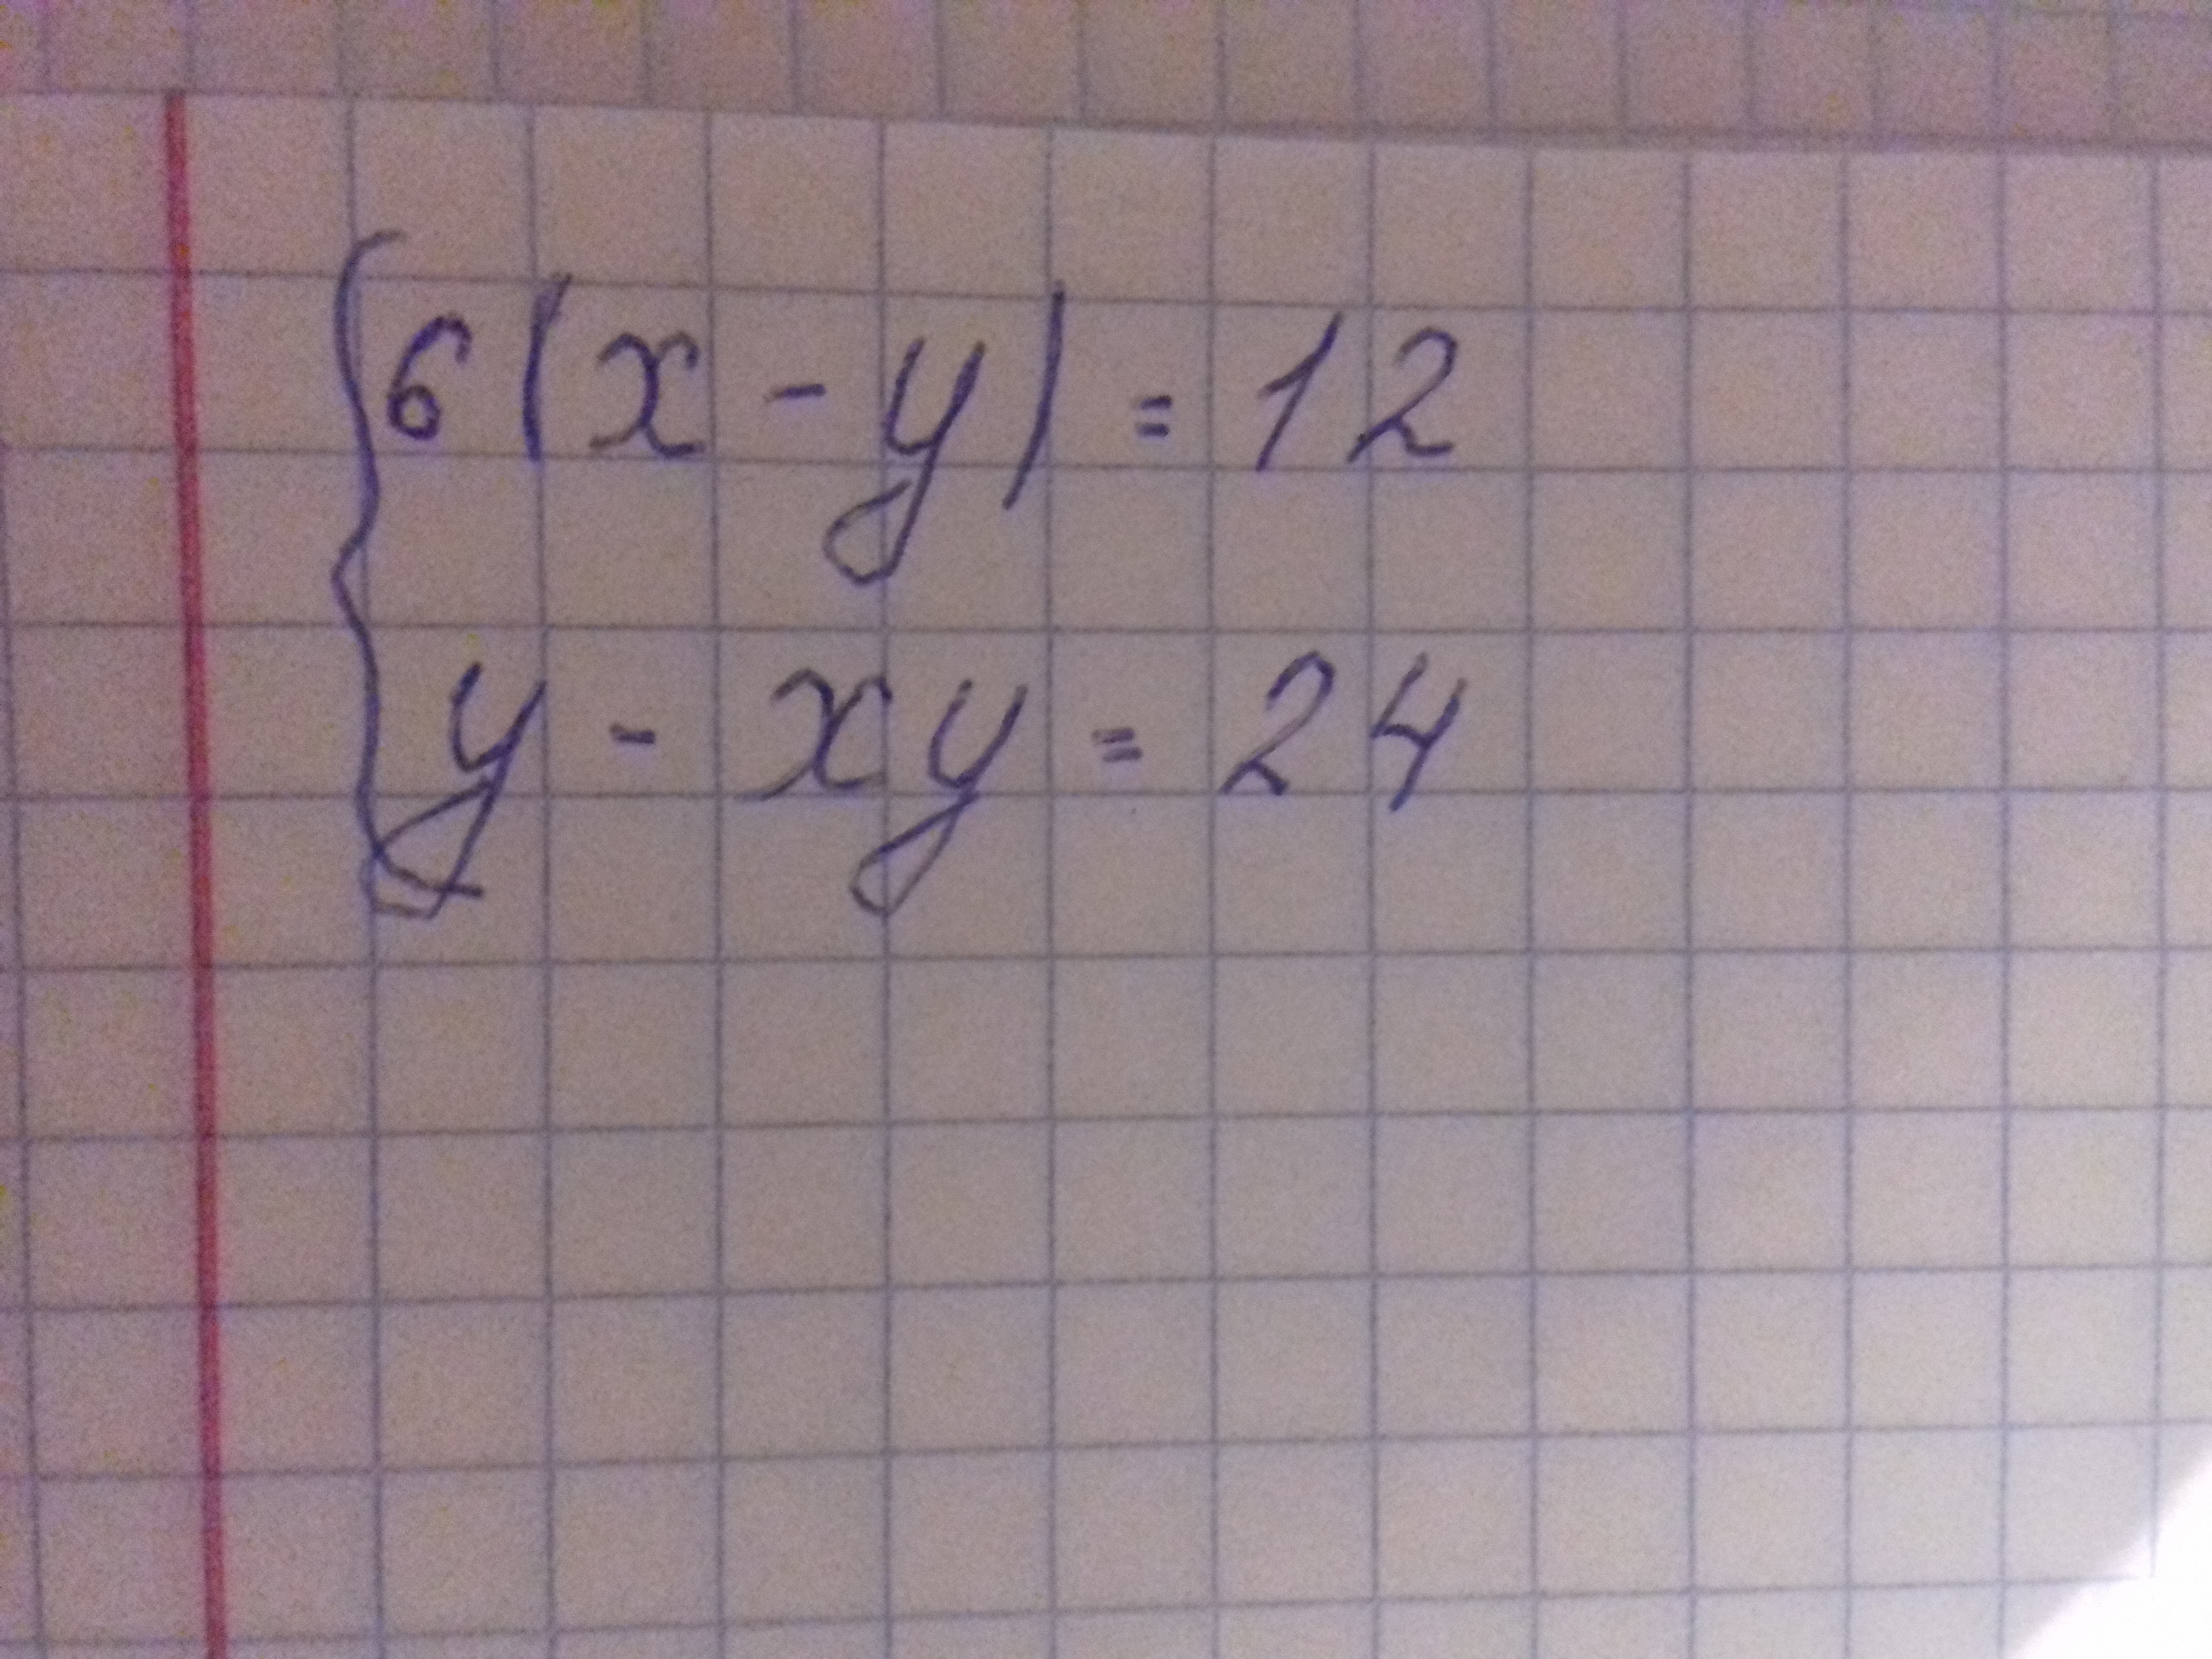 6(x - y) = 12
y - xy = 24